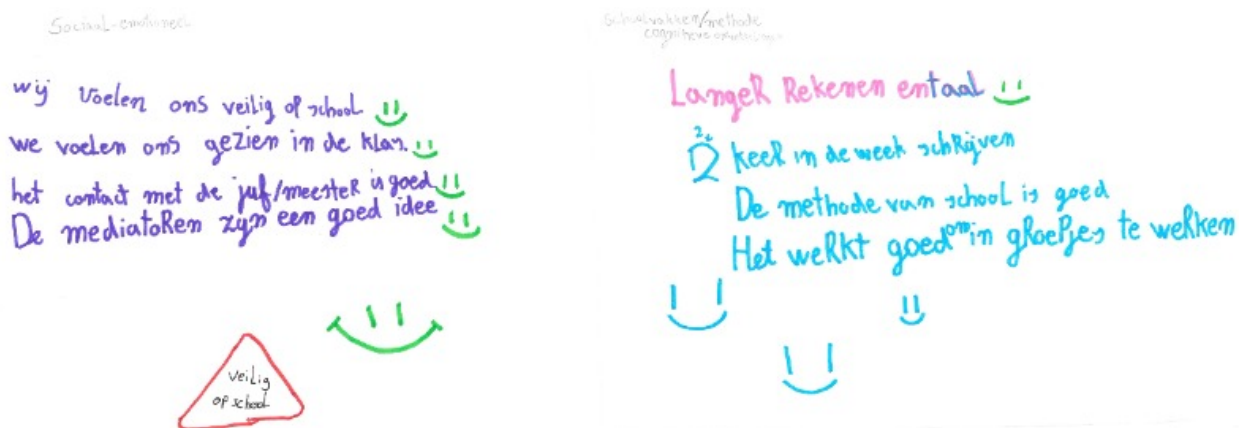 Sociaal-emotioneel
wij voelen ons veilig op school
we voelen ons gezien in de klas.
het contact met de juf/meester is goed
De mediatoren zijn een goed idee
veilig
op school
Schoolvakken/methode
cognitieve
Langer Rekenen en taal
2 keer in de week schrijven
De methode van school is goed
Het werkt goed om in groepjes te werken